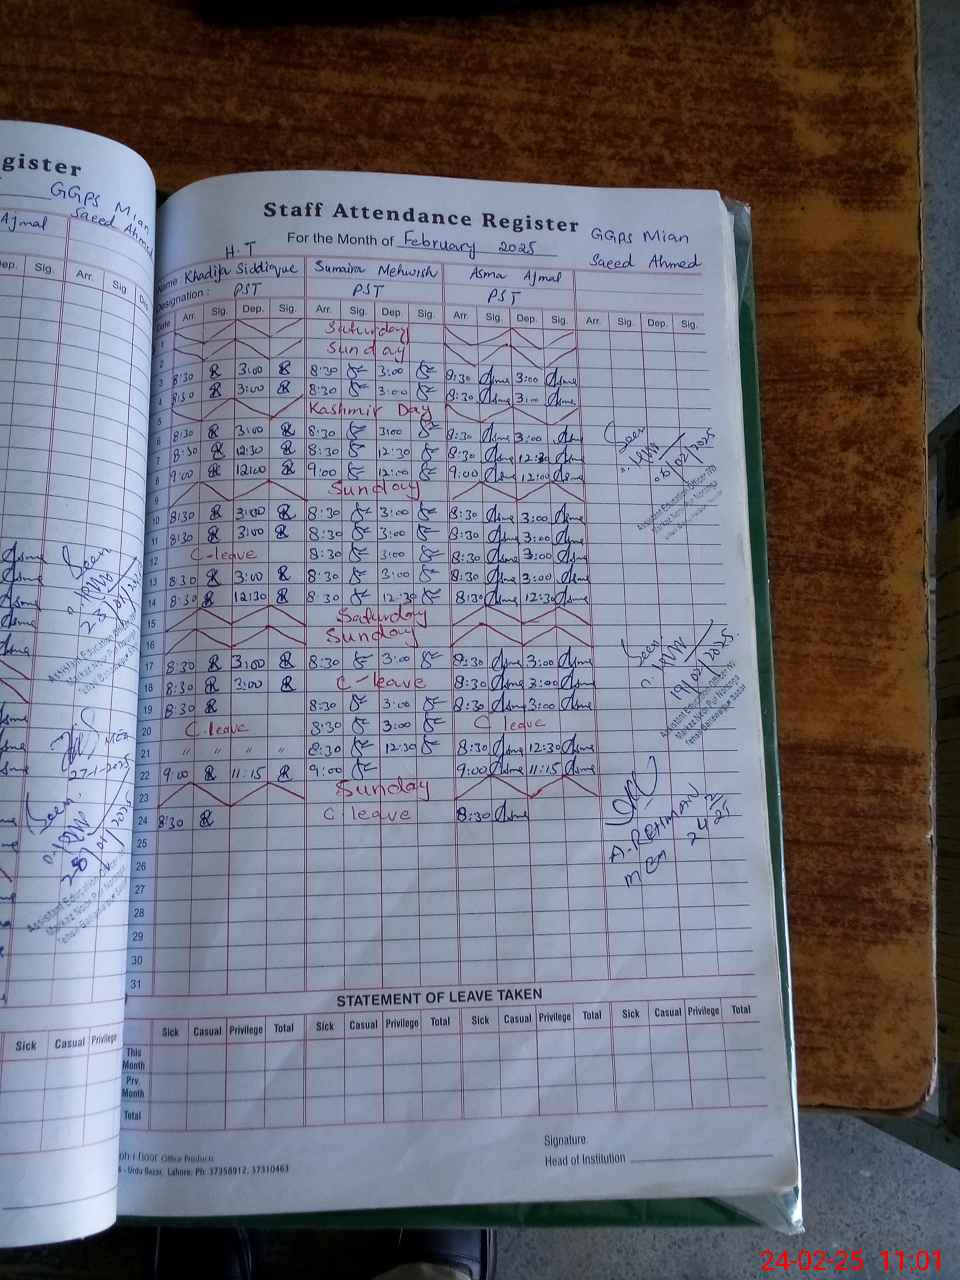 gister
GGPS Mian
Saeed Ahmed
Ajmal
Dep. Sig. Arr. Sig. De
Staff Attendance Register
For the Month of February 2025
GGPS Mian
Saeed Ahmed
H.T
Name: Khadija Siddique Sumaira Mehwish Asma Ajmal
Designation: PST PST PST
Date Arr. Sig. Dep. Sig. Arr. Sig. Dep. Sig. Arr. Sig. Dep. Sig. Arr. Sig. Dep. Sig.
1 Saturday
2 Sunday
3 8:30 3:00 8:30 3:00 8:30 Asma 3:00 Asma
4 8:30 3:00 8:30 3:00 8:30 Asma 3:00 Asma
5 Kashmir Day
6 8:30 3:00 8:30 3:00 8:30 Asma 3:00 Asma
7 8:30 12:30 8:30 12:30 8:30 Asma 12:30 Asma
8 9:00 12:00 9:00 12:00 9:00 Asma 12:00 Asma
9 Sunday
10 8:30 3:00 8:30 3:00 8:30 Asma 3:00 Asma
11 8:30 3:00 8:30 3:00 8:30 Asma 3:00 Asma
12 C-leave 8:30 3:00 8:30 Asma 3:00 Asma
13 8:30 3:00 8:30 3:00 8:30 Asma 3:00 Asma
14 8:30 12:30 8:30 12:30 8:30 Asma 12:30 Asma
15 Saturday
16 Sunday
17 8:30 3:00 8:30 3:00 8:30 Asma 3:00 Asma
18 8:30 3:00 C-leave 8:30 Asma 3:00 Asma
19 8:30 8:30 3:00 8:30 Asma 3:00 Asma
20 C.leave 8:30 3:00 C leave
21 " " " " 8:30 12:30 8:30 Asma 12:30 Asma
22 9:00 11:15 9:00 9:00 Asma 11:15 Asma
23 Sunday
24 8:30 C.leave 8:30 Asma
25
26
27
28
29
30
31
06/02/2025
Assistant Education Officer
19/02/2025
Assistant Education Officer
A.REHMAN
MEA
24-2-25
MEA
27-1-2025
STATEMENT OF LEAVE TAKEN
Sick Casual Privilege
Sick Casual Privilege Total Sick Casual Privilege Total Sick Casual Privilege Total Sick Casual Privilege Total
This Month
Prv. Month
Total
Office Products
Urdu Bazar, Lahore. Ph: 37358912, 37310463
Signature
Head of Institution
24-02-25 11:01